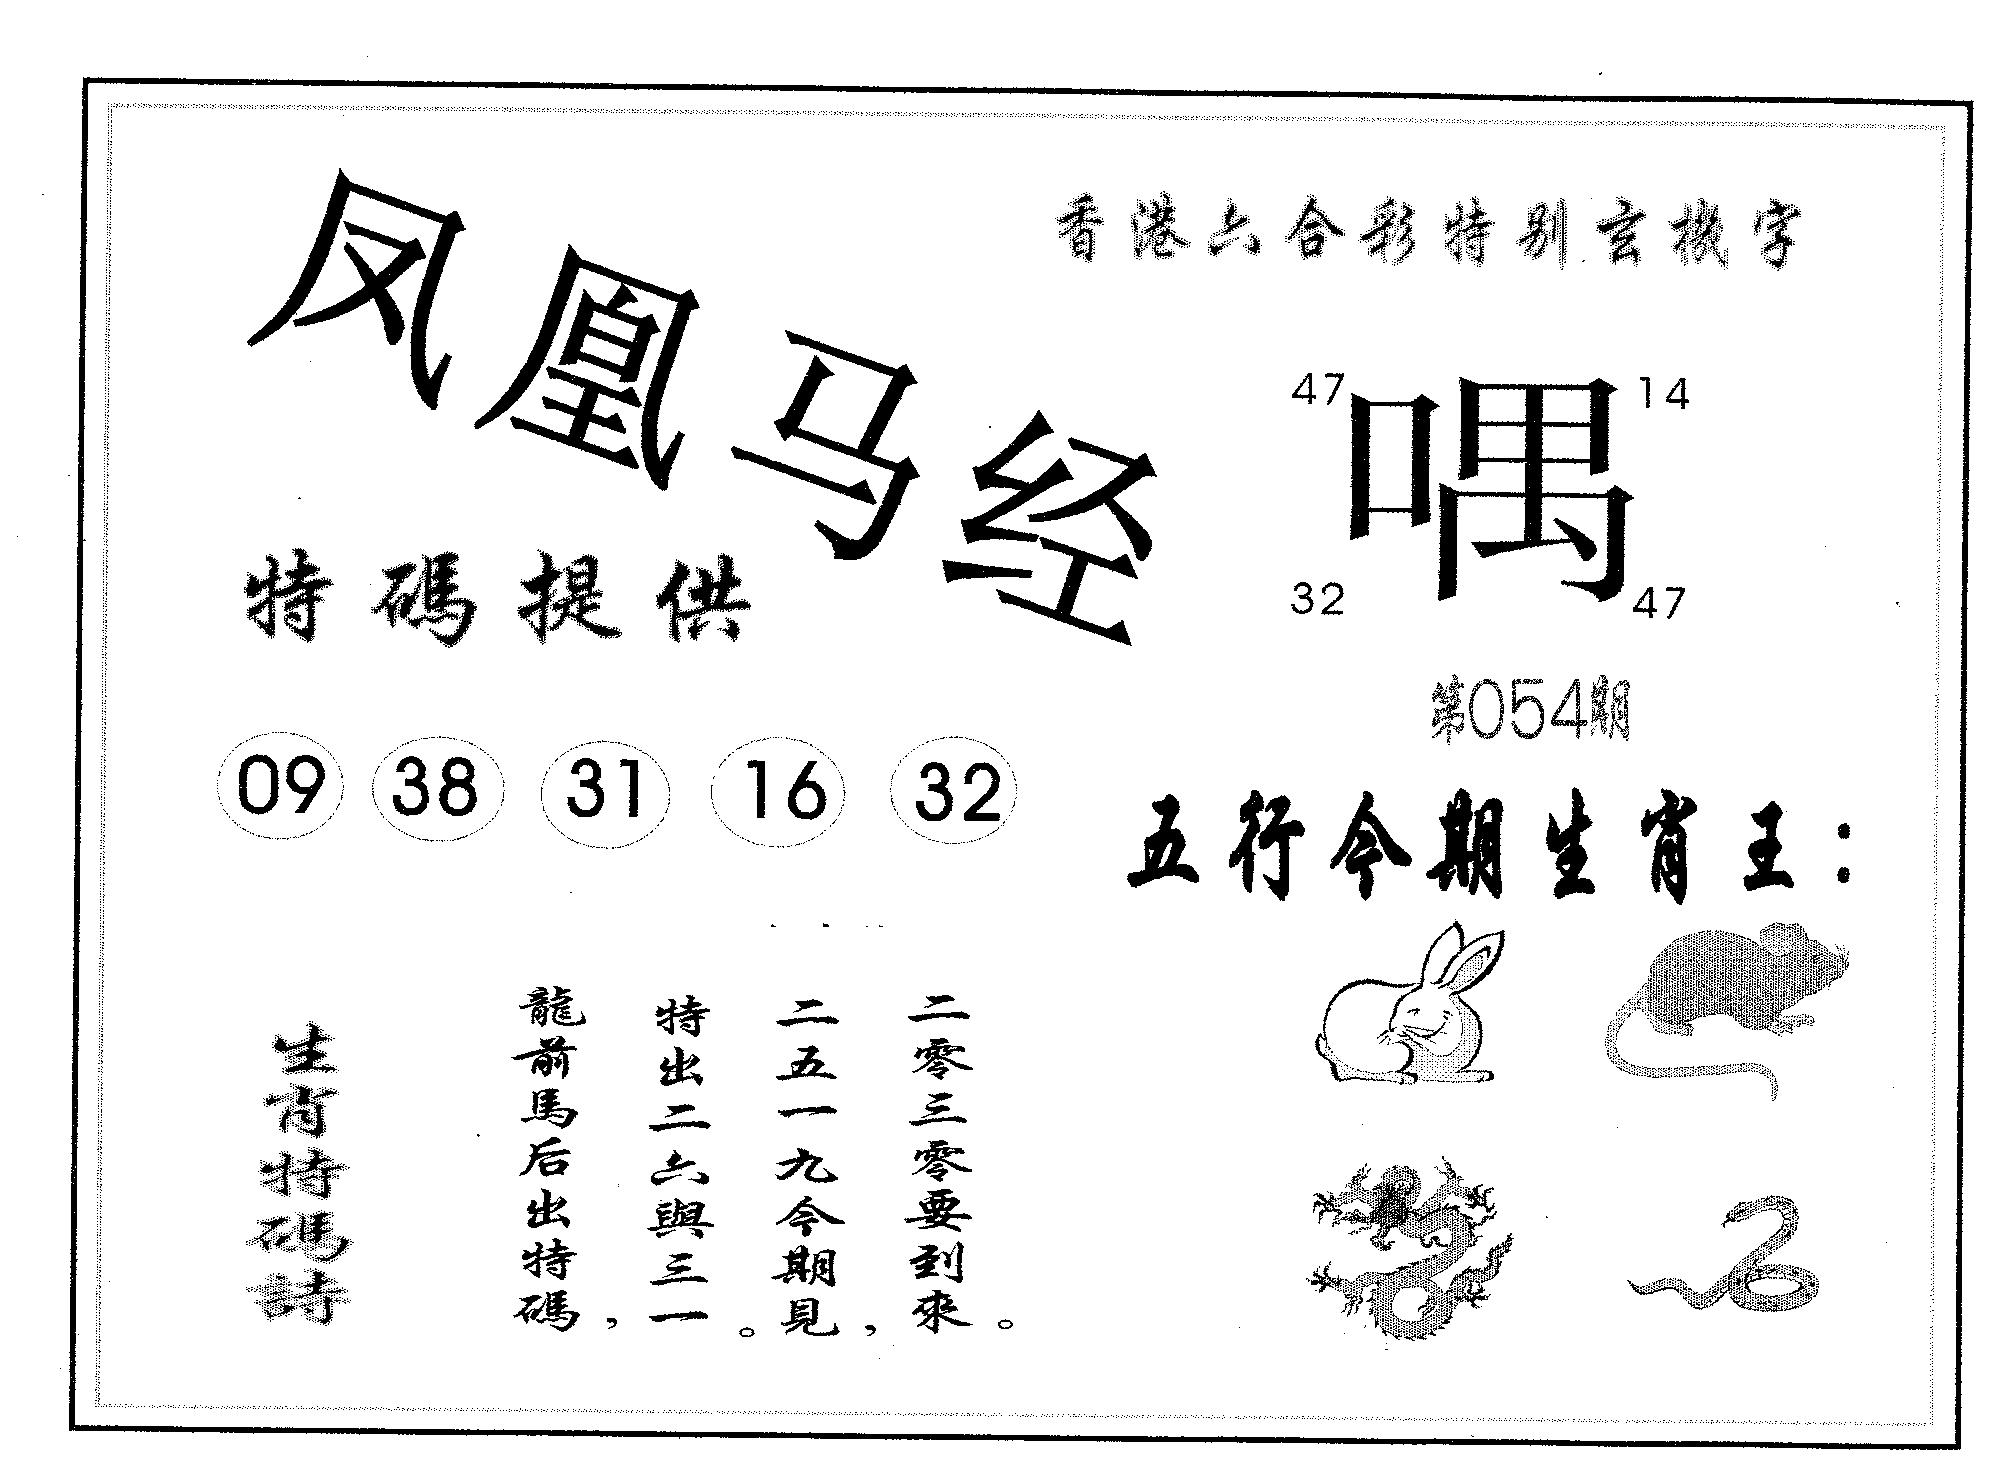 凤凰马经
香港六合彩特别玄機字
47 14
喁
32 47
特碼提供
第054期
09 38 31 16 32
五行今期生肖王：
生肖特碼詩
龍前馬后出特碼，
特出二六與三一。
二五一九今期見，
二零三零要到來。